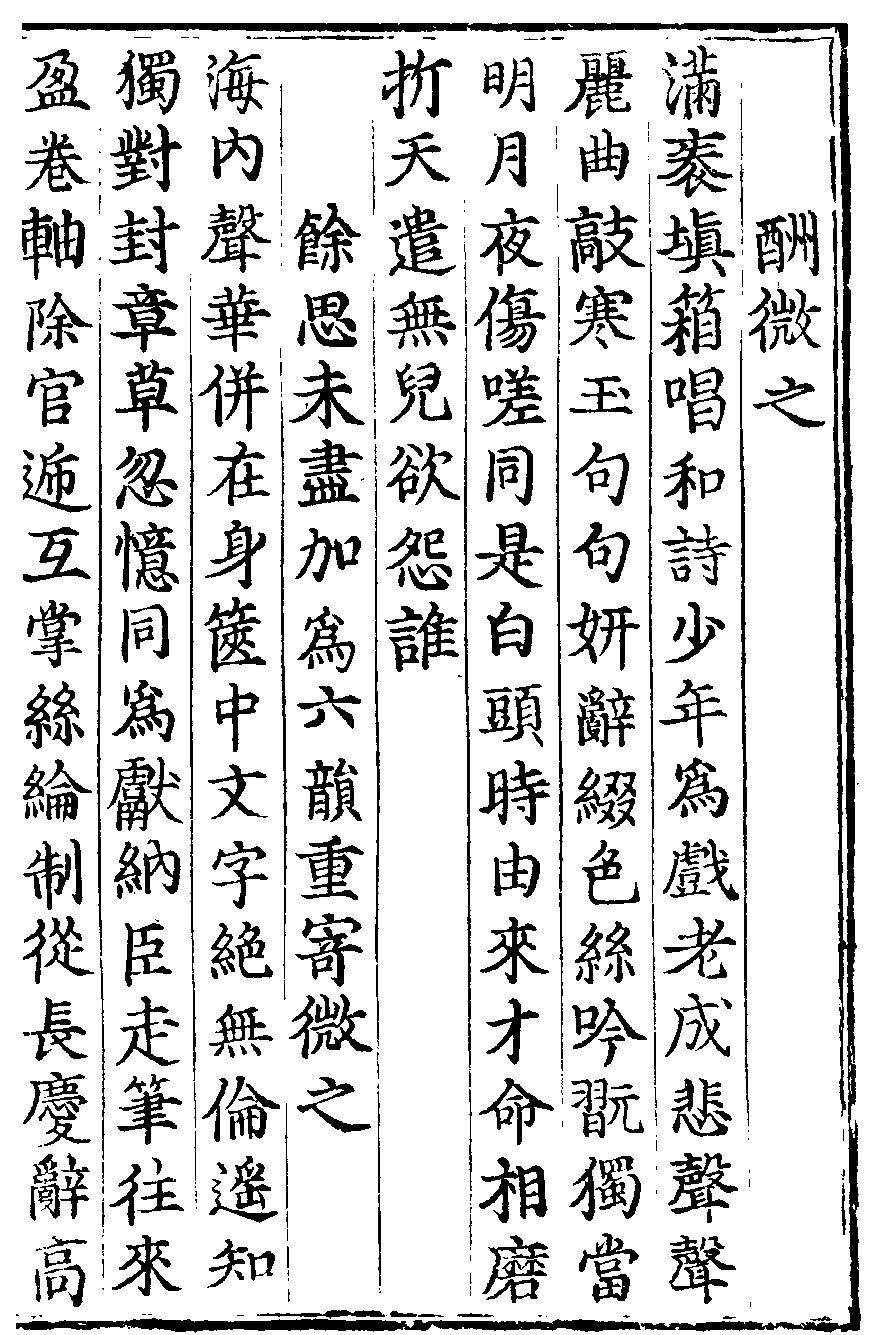 酬微之
滿袠塡箱唱和詩少年爲戲老成悲聲聲
麗曲敲寒玉句句妍辭綴色絲吟翫獨當
明月夜傷嗟同是白頭時由來才命相磨
折天遣無兒欲怨誰
餘思未盡加爲六韻重寄微之
海内聲華併在身篋中文字絶無倫遥知
獨對封章草忽憶同爲獻納臣走筆往來
盈卷軸除官遞互掌絲綸制從長慶辭高